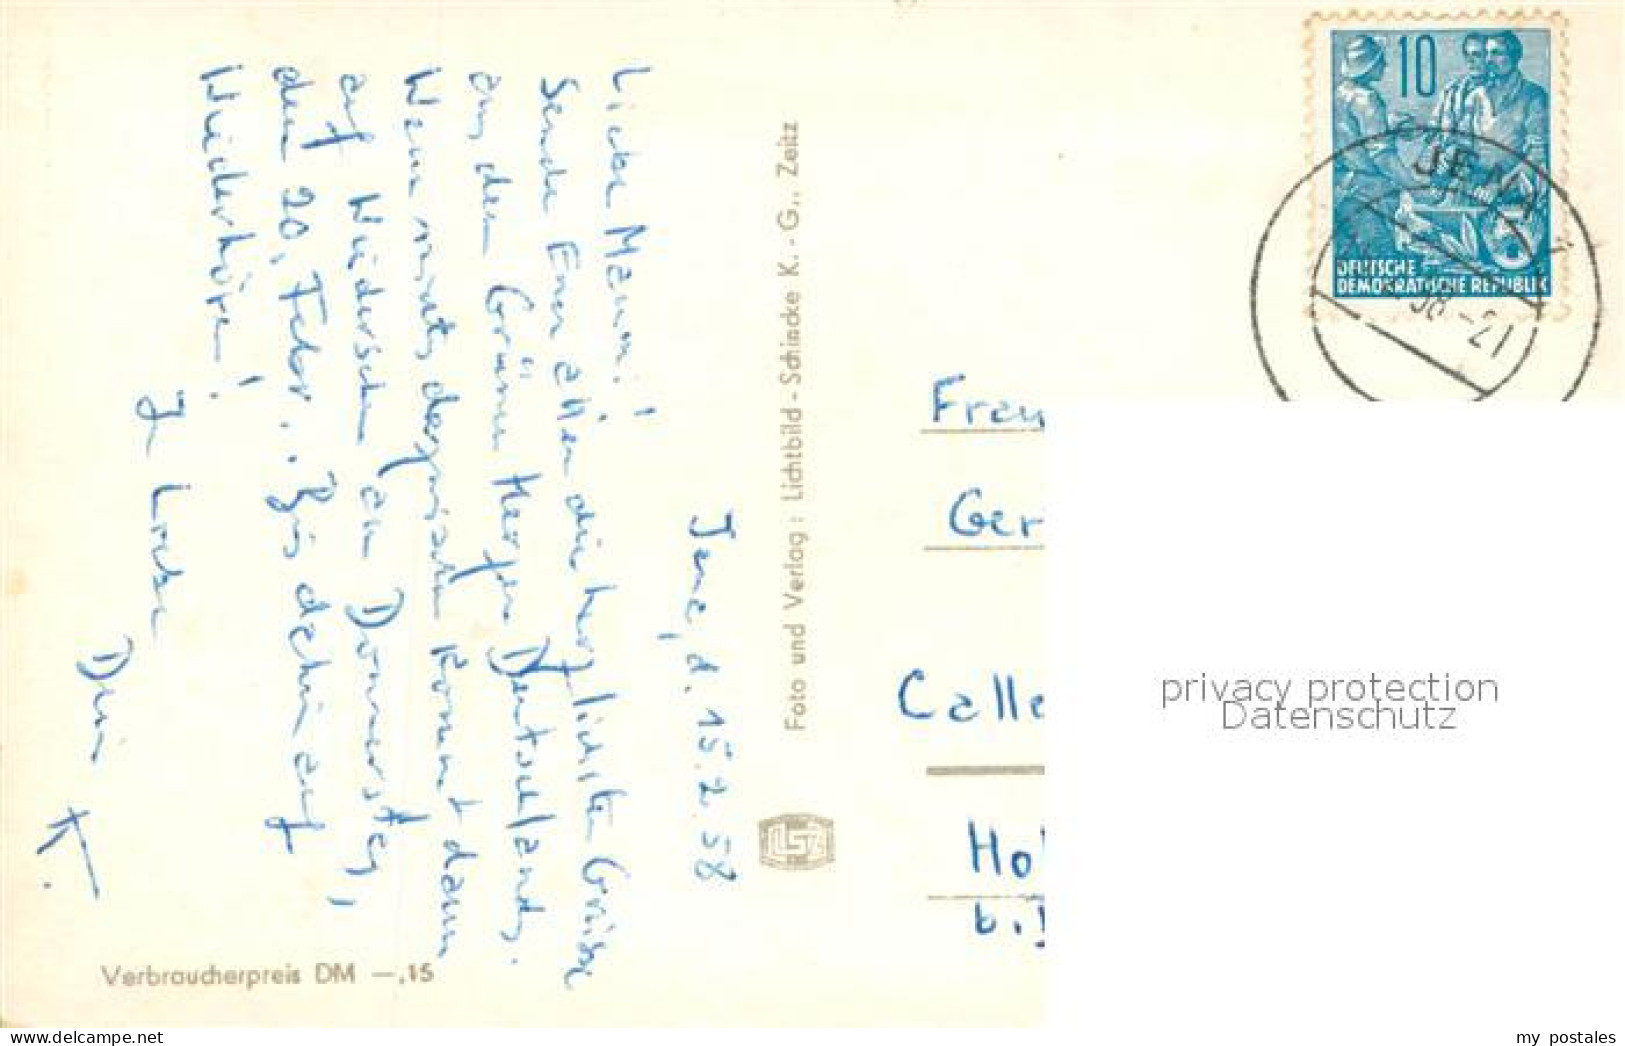 Jena, d. 15.2.58
Liebe Mami!
Sende Euch allen die herzlichsten Grüsse
aus dem Grünen Herzen Deutschlands.
Wenn nichts dazwischen kommt dann
auf Wiedersehen am Donnerstag,
den 20. Febr.. Bis dahin auf
Wiederhören!
In Liebe
Dein
K.
Verbraucherpreis DM —,15
Foto und Verlag: Lichtbild-Schincke K.-G., Zeitz
10
DEUTSCHE
DEMOKRATISCHE REPUBLIK
JENA 1
58-21
Frau
Ger
Calle
Ho
b.
privacy protection
Datenschutz
delcampe.net
my_postales